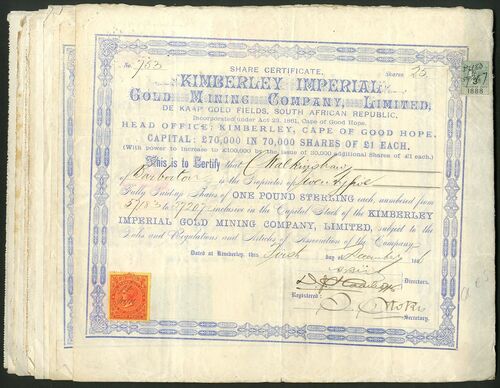 SHARE CERTIFICATE.
No. 753 Shares 25
KIMBERLEY IMPERIAL
GOLD MINING COMPANY, LIMITED,
DE KAAP GOLD FIELDS, SOUTH AFRICAN REPUBLIC.
Incorporated under Act 23, 1861, Cape of Good Hope.
HEAD OFFICE: KIMBERLEY, CAPE OF GOOD HOPE.
CAPITAL: £70,000 IN 70,000 SHARES OF £1 EACH.
(With power to increase to £100,000 by the issue of 30,000 additional Shares of £1 each.)
This is to Certify that
of Barberton is the Proprietor of Twenty five
Fully Paid-up Shares of ONE POUND STERLING each, numbered from
to inclusive in the Capital Stock of the KIMBERLEY
IMPERIAL GOLD MINING COMPANY, LIMITED, subject to the
Rules and Regulations and Articles of Association of the Company.
Dated at Kimberley, this day of 188
Directors.
Registered:
Secretary.
1888